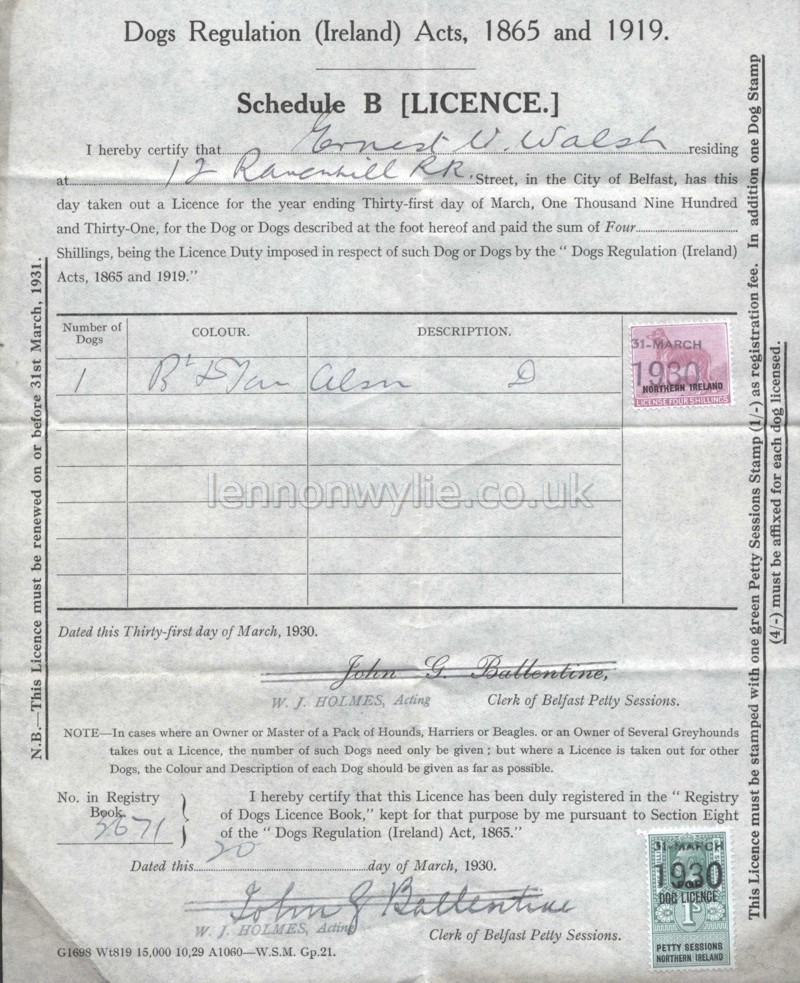 Dogs Regulation (Ireland) Acts, 1865 and 1919.
Schedule B [LICENCE.]
I hereby certify that Ernest W. Walsh residing
at 12 Ravenhill Rd. Street, in the City of Belfast, has this
day taken out a Licence for the year ending Thirty-first day of March, One Thousand Nine Hundred
and Thirty-One, for the Dog or Dogs described at the foot hereof and paid the sum of Four
Shillings, being the Licence Duty imposed in respect of such Dog or Dogs by the “ Dogs Regulation (Ireland)
Acts, 1865 and 1919.”
Number of Dogs
COLOUR.
DESCRIPTION.
1 Bl & Tan D
31-MARCH
1930
NORTHERN IRELAND
LICENSE FOUR SHILLINGS
lennonwylie.co.uk
Dated this Thirty-first day of March, 1930.
John G. Ballentine,
W. J. HOLMES, Acting Clerk of Belfast Petty Sessions.
NOTE—In cases where an Owner or Master of a Pack of Hounds, Harriers or Beagles. or an Owner of Several Greyhounds
takes out a Licence, the number of such Dogs need only be given ; but where a Licence is taken out for other
Dogs, the Colour and Description of each Dog should be given as far as possible.
No. in Registry
Book.
3671
I hereby certify that this Licence has been duly registered in the “ Registry
of Dogs Licence Book,” kept for that purpose by me pursuant to Section Eight
of the “ Dogs Regulation (Ireland) Act, 1865.”
Dated this 20 day of March, 1930.
John G Ballentine
W. J. HOLMES, Acting
Clerk of Belfast Petty Sessions.
G1698 Wt819 15,000 10,29 A1060—W.S.M. Gp.21.
31-MARCH
1930
DOG LICENCE
1S
PETTY SESSIONS
NORTHERN IRELAND
N.B.—This Licence must be renewed on or before 31st March, 1931.
This Licence must be stamped with one green Petty Sessions Stamp (1/-) as registration fee. In addition one Dog Stamp
(4/-) must be affixed for each dog licensed.